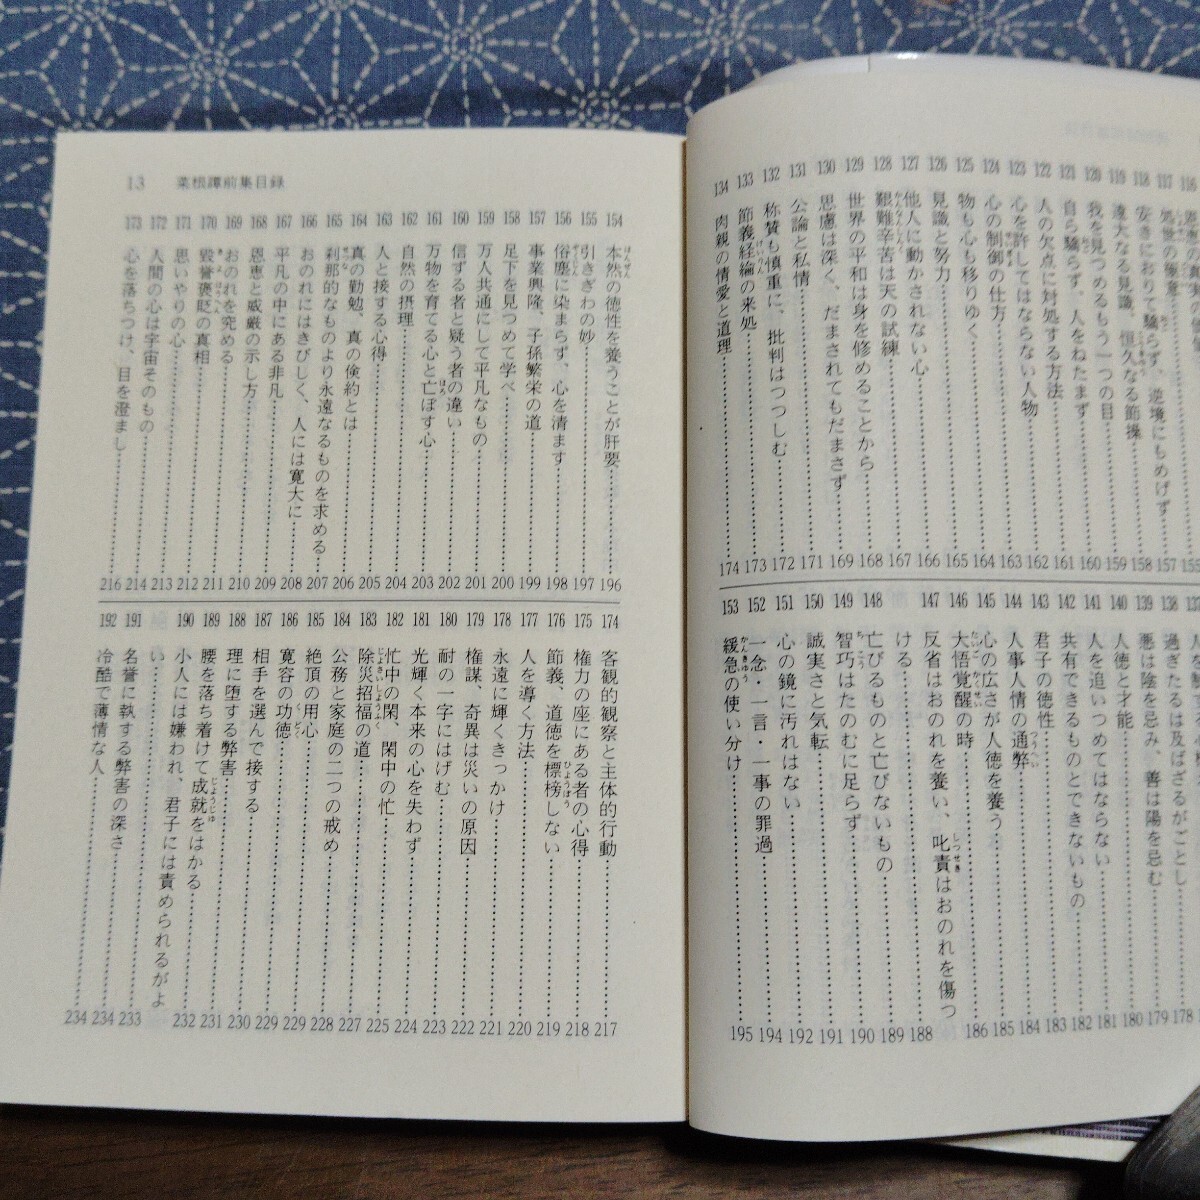 116
117 処世の極意……157
118 安きにおりて驕らず、逆境にもめげず……158
119 遠大なる見識、恒久なる節操……159
120 我を見つめるもう一つの目……160
121 自ら驕らず、人をねたまず……161
122 人の欠点に対処する方法……162
123 心を許してはならない人物……163
124 心の制御の仕方……164
125 物も心も移りゆく……165
126 見識と努力……166
127 他人に動かされない心……167
128 艱難辛苦は天の試練……167
129 世界の平和は身を修めることから……168
130 思慮は深く、だまされてもだまさず……169
131 公論と私情……171
132 称賛も慎重に、批判はつつしむ……172
133 節義経綸の来処……173
134 肉親の情愛と道理……174
137
138 過ぎたるは及ばざるがごとし……178
139 悪は陰を忌み、善は陽を忌む……179
140 人徳と才能……180
141 人を追いつめてはならない……181
142 共有できるものとできないもの……182
143 君子の徳性……183
144 人事人情の通弊……184
145 心の広さが人徳を養う……185
146 大悟覚醒の時……186
147 反省はおのれを養い、叱責はおのれを傷つ
ける……188
148 亡びるものと亡びないもの……189
149 智巧はたのむに足らず……190
150 誠実さと気転……191
151 心の鏡に汚れはない……192
152 一念・一言・一事の罪過……194
153 緩急の使い分け……195
13 菜根譚前集目録
154 本然の徳性を養うことが肝要……196
155 引きぎわの妙……197
156 俗塵に染まらず、心を清ます……198
157 事業興隆、子孫繁栄の道……199
158 足下を見つめて学べ……200
159 万人共通にして平凡なもの……201
160 信ずる者と疑う者の違い……202
161 万物を育てる心と亡ぼす心……203
162 自然の摂理……204
163 人と接する心得……205
164 真の勤勉、真の倹約とは……206
165 刹那的なものより永遠なるものを求める……207
166 おのれにはきびしく、人には寛大に……208
167 平凡の中にある非凡……209
168 恩恵と威厳の示し方……210
169 おのれを究める……211
170 毀誉褒貶の真相……212
171 思いやりの心……213
172 人間の心は宇宙そのもの……214
173 心を落ちつけ、目を澄まし……216
174 客観的観察と主体的行動……217
175 権力の座にある者の心得……218
176 節義、道徳を標榜しない……219
177 人を導く方法……220
178 永遠に輝くきっかけ……221
179 権謀、奇異は災いの原因……222
180 耐の一字にはげむ……223
181 光輝く本来の心を失わず……224
182 忙中の閑、閑中の忙……225
183 除災招福の道……227
184 公務と家庭の二つの戒め……228
185 絶頂の用心……229
186 寛容の功徳……229
187 相手を選んで接する……230
188 理に堕する弊害……231
189 腰を落ち着けて成就をはかる……232
190 小人には嫌われ、君子には責められるがよ
い……233
191 名誉に執する弊害の深さ……234
192 冷酷で薄情な人……234